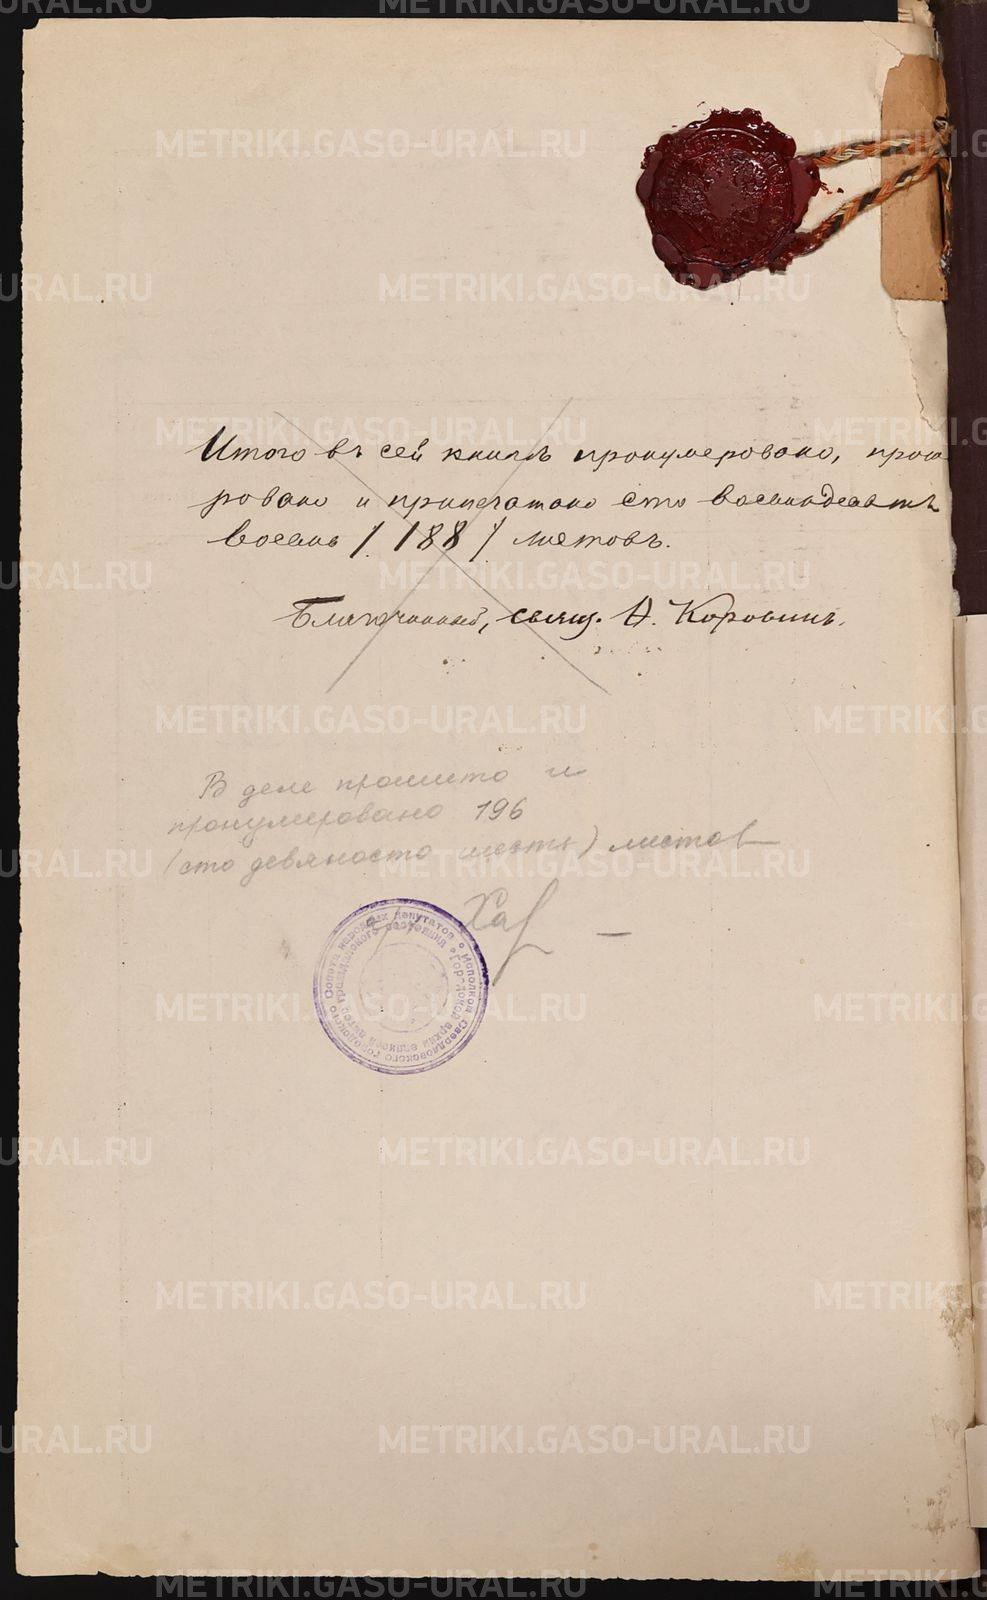 Итого въ сей книгѣ пронумеровано, прош
ровано и припечатано сто восемьдесятъ
восемь /188/ листовъ.
Благочинный, свящ. А. Коровинъ.
В деле прошито и
пронумеровано 196
(сто девяносто шесть) листов
Хар
Исполком Свердловского городского Совета народных депутатов
Городской архив записей актов гражданского состояния
METRIKI.GASO-URAL.RU